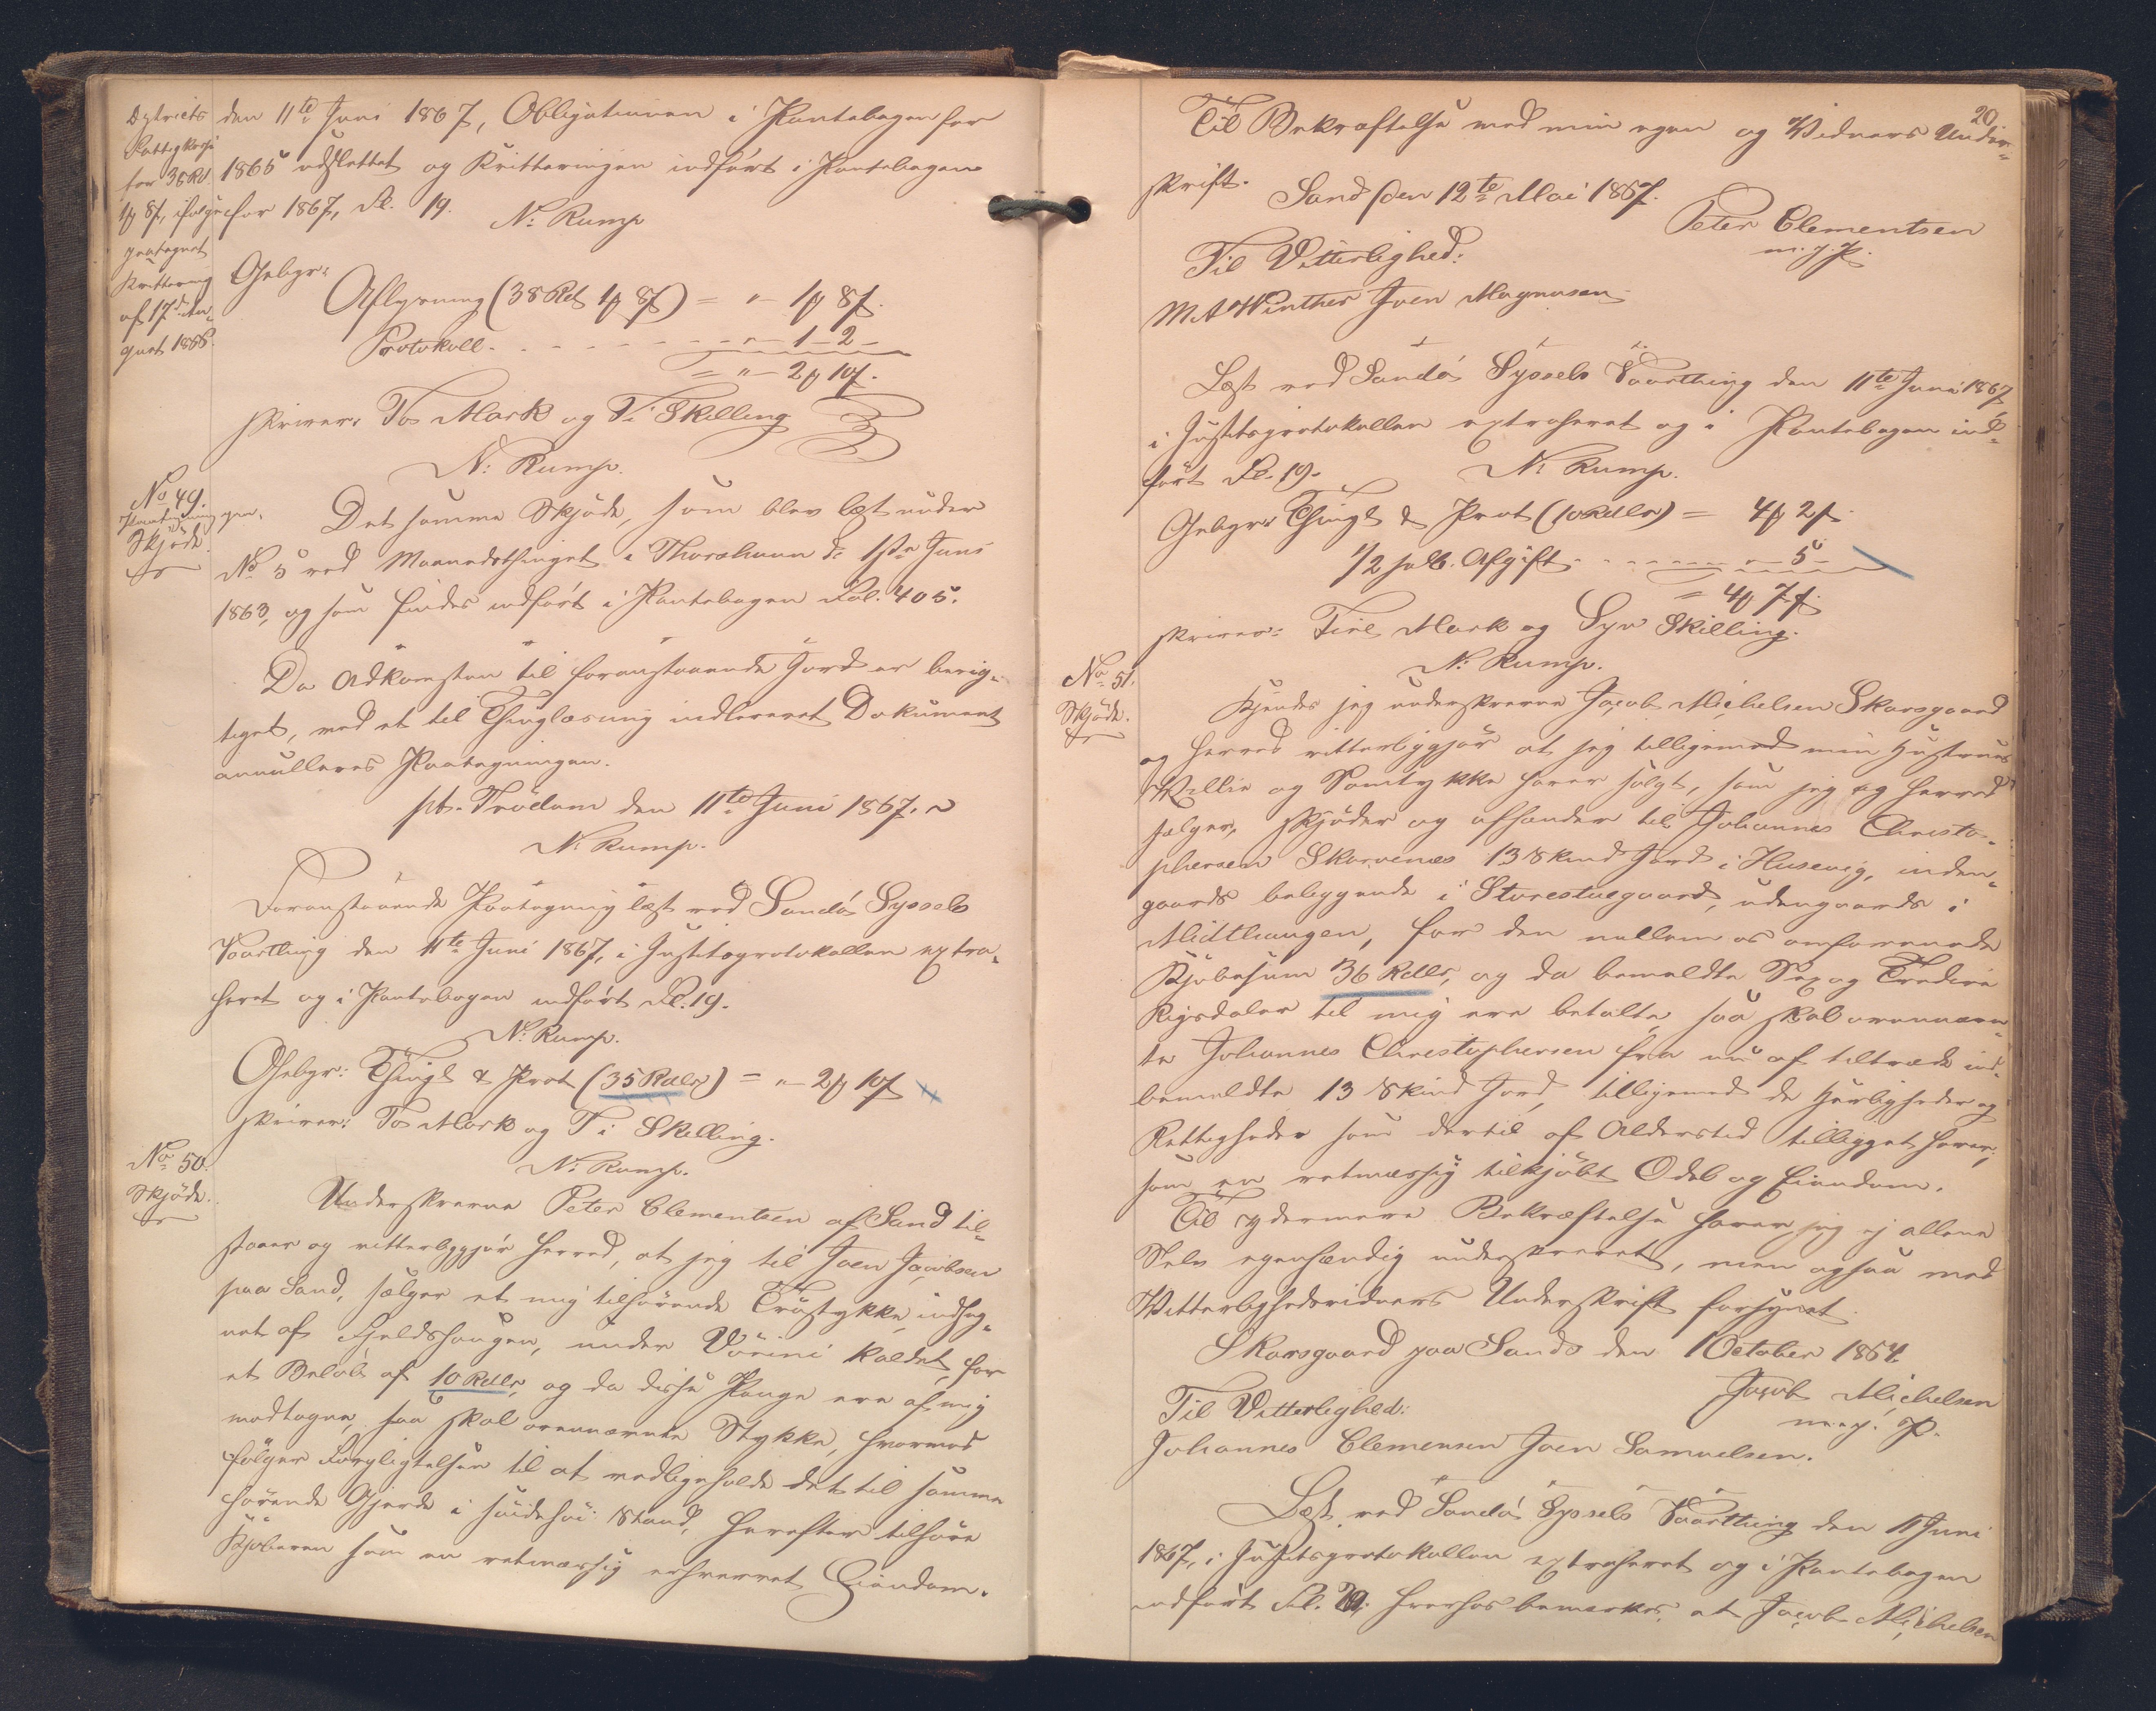 Dstricts
Fattigkasse
for 38 Rd
1ꝳ 8ſ, ifølge
paategnet
Kvittering
af 17de Au-
gust 1866.
den 11te Juni 1867, Obligationen i Pantebogen for
1865 udslettet og Kvitteringen indført i Pantebogen
for 1867, Fol. 19.
N: Rump
Gebyr:
Aflysning (38 Rd 1ꝳ 8ſ) = " - 1ꝳ 8ſ.
Protokoll - - - - - " - 1 - 2 -
= " - 2ꝳ 10ſ.
skriver: To Mark og Ti Skilling
N: Rump.
No 49.
Paategning paa
Skjøde.
Det samme Skjøde, som blev læst under
No 5 ved Maanedsthinget i Thorshavn d: 1ste Juni
1863, og som findes indført i Pantebogen Fol. 405.
Da Adkomsten til foranstaaende Jord er berig-
tiget, med et til Thinglæsning indleveret Dokument
annulleres Paategningen.
pt. Trödum den 11te Juni 1867.
N: Rump.
Foranstaaende Paategning læst ved Sandø Syssels
Vaarthing den 11te Juni 1867, i Justitsprotokollen extra-
heret og i Pantebogen indført Fol. 19.
N: Rump.
Gebyr: Thingl & Prot (35 Rdlr) = " - 2ꝳ 10ſ
skriver: To Mark og Ti Skilling.
N: Rump.
No 50.
Skjøde.
Underskrevne Peter Clementsen af Sand til-
staaer og vitterliggjør herved, at jeg til Joen Jacobsen
paa Sand, sælger et mig tilhørende Tröstykke, indheg-
net af Fjeldshaugen, under Vörini kaldet, for
et Beløb af 10 Rdlr, og da disse Penge ere af mig
modtagne, saa skal ovennævnte Stykke, hvormed
følger Forpligtelsen til at vedligeholde det til samme
hørende Gjerde i Stand, herefter tilhøre
Kjøberen som en retmæssig erhvervet Eiendom.
20
Til Bekræftelse med min egen og Vidners Under-
skrift.
Sand den 12te Mai 1867.
Peter Clementsen
m. f. P.
Til Vitterlighed:
M A Winther Joen Magnusen
Læst ved Sandø Syssels Vaarthing den 11te Juni 1867
i Justitsprotokollen extraheret og i Pantebogen ind-
ført Fol. 19.
N: Rump.
Gebyr: Thingl & Prot (10 Rdlr) = 4ꝳ 2ſ.
1/2 pCt. Afgift - - - - " - 5 -
= 4ꝳ 7ſ
skriver: Fire Mark og Syv Skilling.
N: Rump.
No 51.
Skjøde.
Kjendes jeg underskrevne Jacob Michelsen Skarsgaard
og herved vitterliggjør at jeg tilligemed min Hustrues
Villie og Samtykke haver solgt, som jeg og herved
sælger, skjøder og afhænder til Johannes Christo-
phersen Skarvenæs 13 Skind Jord i Husevig, inden-
gaards beliggende i Storestuegaard, udengaards i
Midthaugen, for den mellem os omforenede
Kjøbesum 36 Rdlr, og da bemeldte Sex og Tredive
Rigsdaler til mig ere betalte, saa skal ovennævn-
te Johannes Christophersen fra nu af tiltræde ind-
bemeldte 13 Skind Jord, tilligemed de Herligheder og
Rettigheder som dertil af Alderstid tilligget haver,
som en retmæssig tilkjøbt Odel og Eiendom.
Til ydermere Bekræftelse haver jeg ej allene
Selv egenhændig underskrevet, men ogsaa med
Vitterlighedsvidners Underskrift forsynet.
Skarsgaard paa Sandø den 1 October 1864.
Jacob Michelsen
m. f. P.
Til Vitterlighed:
Johannes Clemensen Joen Samuelsen.
Læst ved Sandø Syssels Vaarthing den 11 Juni
1867, i Justitsprotokollen extraheret og i Pantebogen
indført Fol. 20, hvorhos bemærkes, at Jacob Michelsen